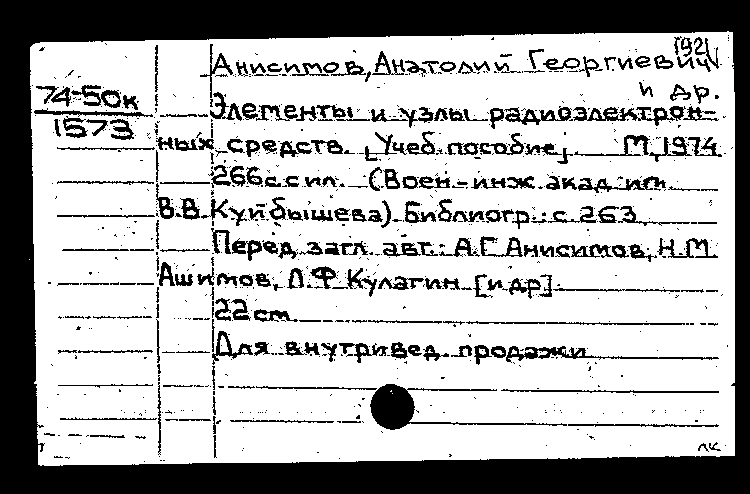 192
Анисимов, Анатолий Георгиевич
и др.
74-50к
1573
Элементы и узлы радиоэлектрон-
ных средств. [Учеб. пособие]. М., 1974
266с. с ил. (Воен.-инж. акад. им.
В.В. Куйбышева). Библиогр.: с. 263
Перед загл. авт.: А.Г. Анисимов, Н.М.
Ашимов, Л.Ф. Кулагин [и др].
22 см
Для внутривед. продажи
ЛК